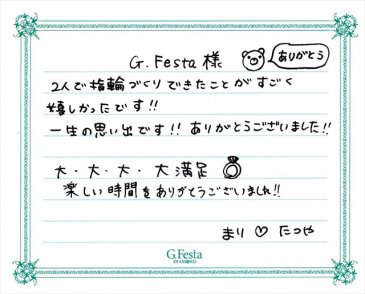 G.Festa 様
ありがとう
2人で指輪づくりできたことがすごく
嬉しかったです!!
一生の思い出です!! ありがとうございました!!
大・大・大・大満足
楽しい時間をありがとうございました!!
まり♡たつや
G.Festa
DIAMOND